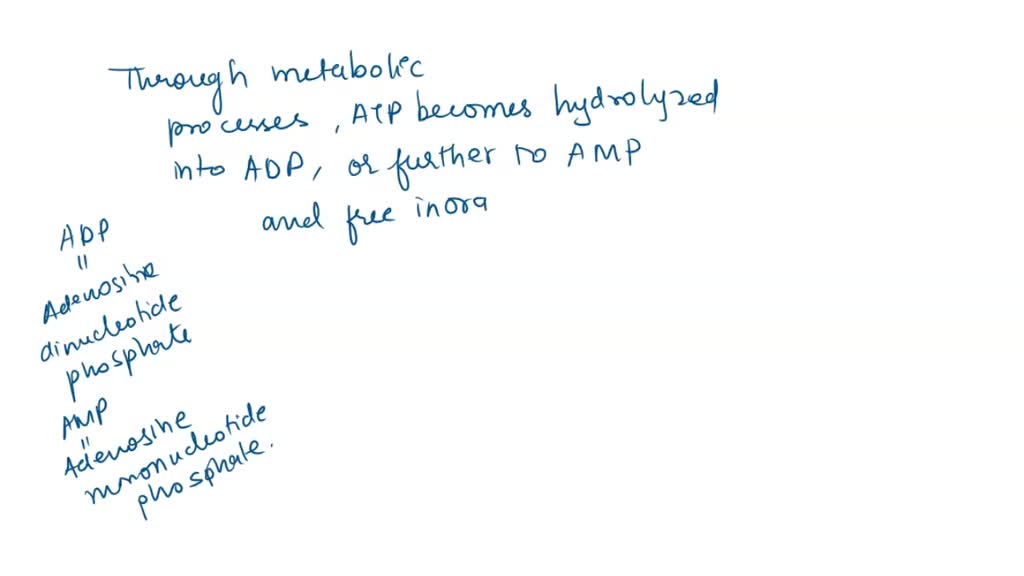 Through metabolic
processes, ATP becomes hydrolyzed
into ADP, or further to AMP
and free inora
ADP
=
Adenosine
dinucleotide
phosphate
AMP
=
Adenosine
mononucleotide
phosphate.